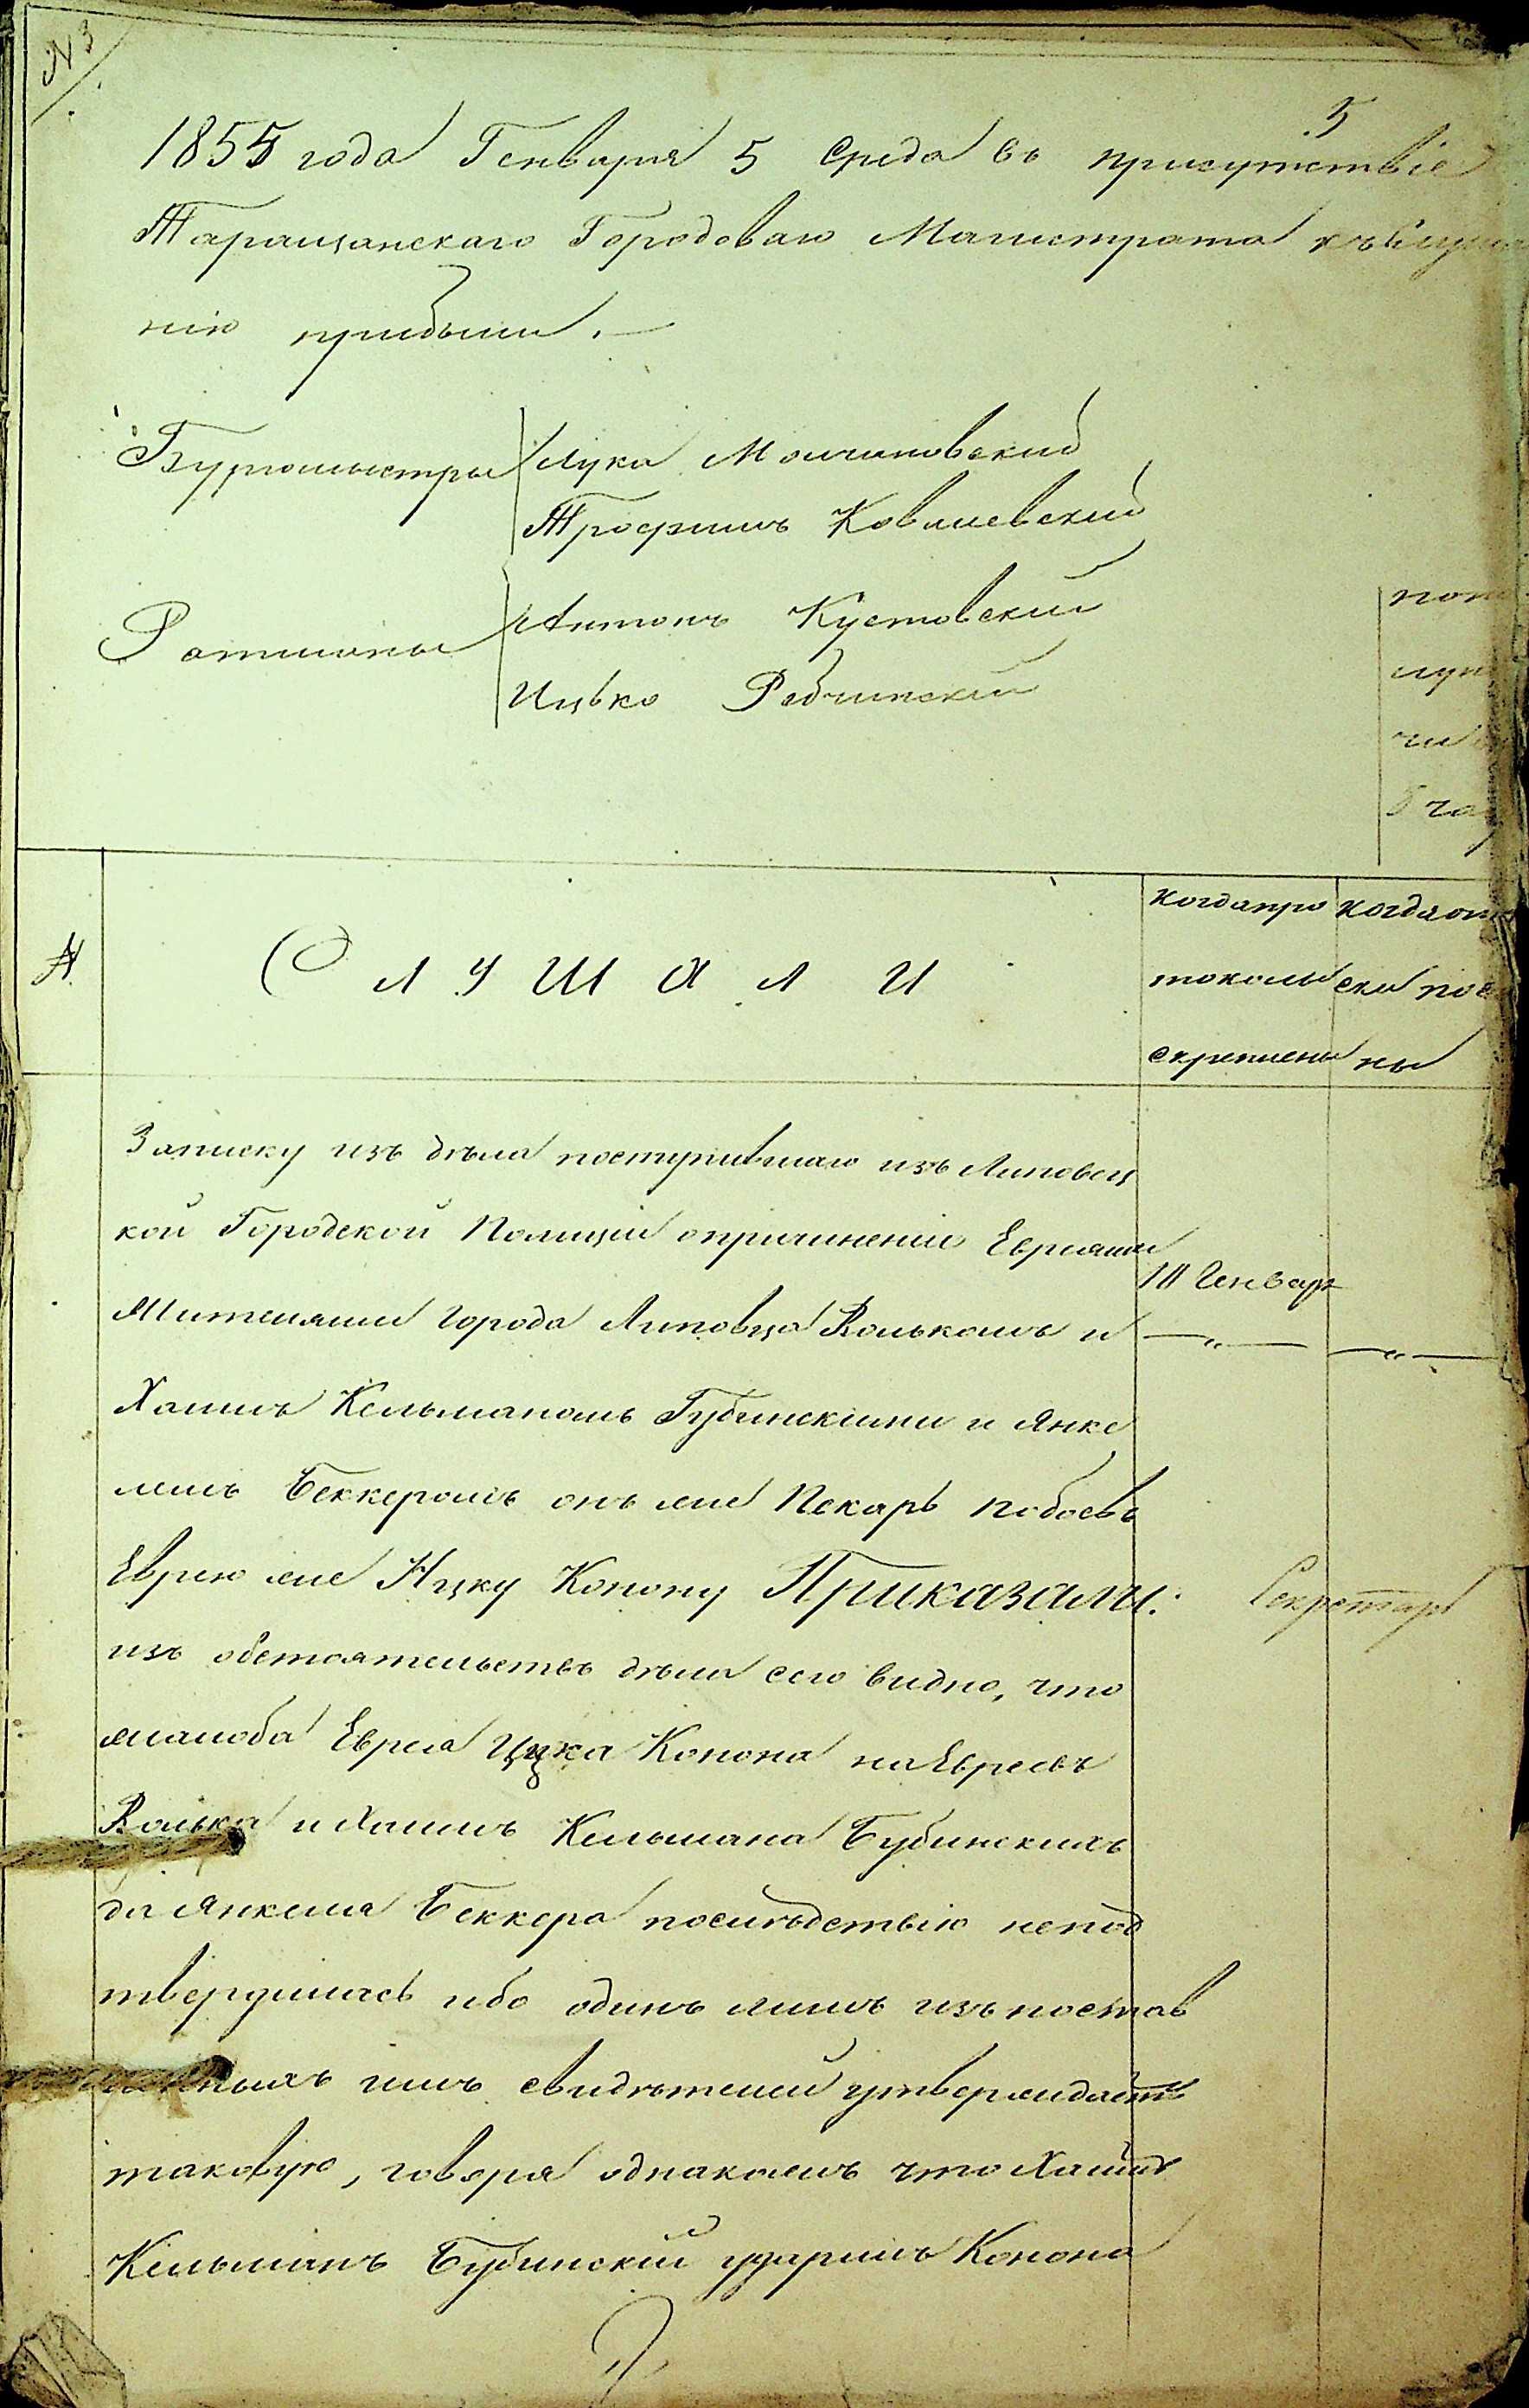 N 3
5
1855 года Генваря 5 Среда въ присутствіе
Таращанскаго Городоваго Магистрата къ слуша
нію прибыли.
Бургомистры Лука Молчановский
Трофимъ Ковалевский
Ратманы Антонъ Кустовский
Ицько Рабчинский
N
Слушали
когда про
токолы
скреплены
когда от
ски по
ны
Записку изъ дѣла поступившаго изъ Липовец
кой Городской Полиціи опричиненіи Евреями
Жителями города Липовца Волькомъ и
Хаимъ Кельманомъ Бубинскими и Янке
лемъ Беккеромъ онъ же Пекарь побоевъ
Еврею же Ицку Конону Приказали:
изъ обстоятельствъ дѣла сего видно, что
жалоба Еврея Ицка Конона на Евреевъ
Волька и Хаимъ Кельмана Бубинскихъ
да Янкеля Беккера послѣдствію непод
твердилась ибо одинъ лишъ изъ постав
ленныхъ имъ свидѣтелей утверждаетъ
таковую, говоря однакожъ что Хаимъ
Кельманъ Бубинскій ударилъ Конона
14 Генваря
Секретарь